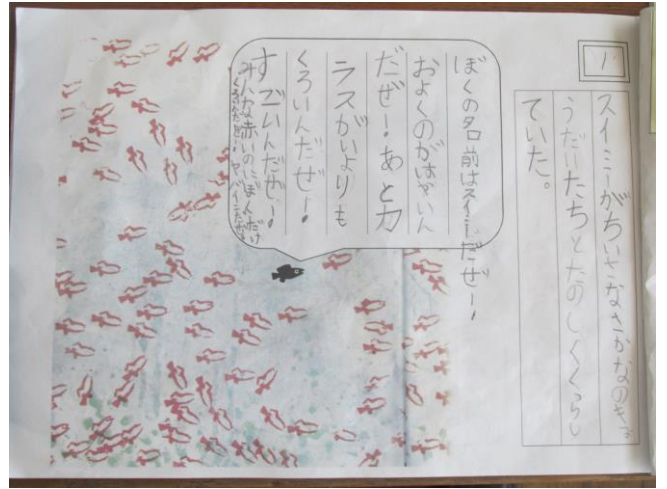 1
スイミーがちいさなさかなのきょ
うだいたちとたのしくくらし
ていた。
ぼくの名前はスイミーだぜー!
およくのがはやいん
だぜ!あとカ
ラスがいよりも
くろいんだぜー!
すごいんだぜー!
みんな赤いのにぼくだけ
くろいんだぜー!